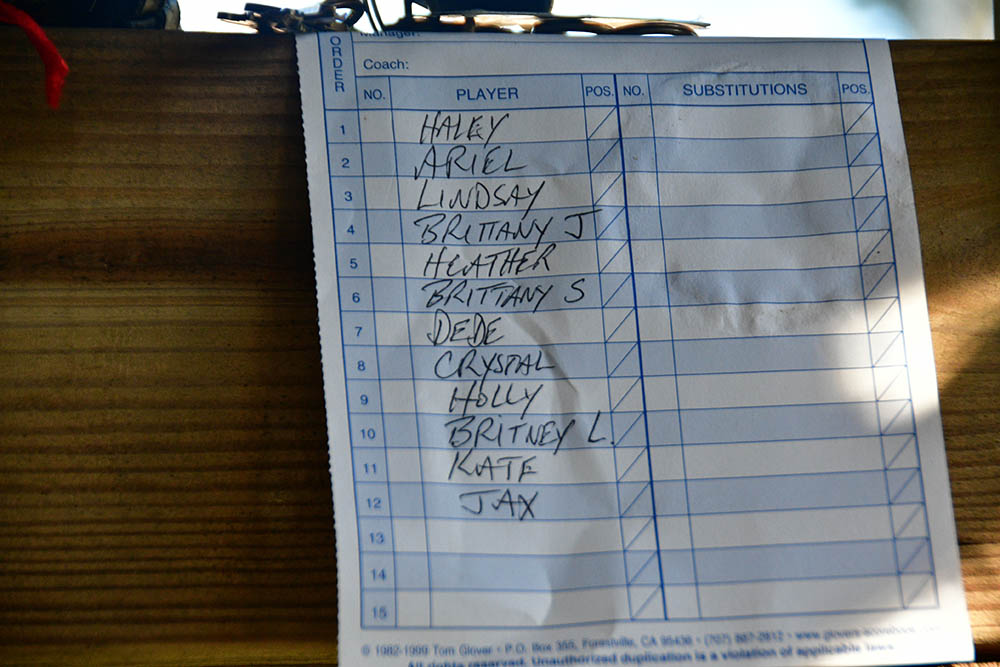 Manager:
ORDER
Coach:
NO. PLAYER POS. NO. SUBSTITUTIONS POS.
1 HALEY
2 ARIEL
3 LINDSAY
4 BRITTANY J
5 HEATHER
6 BRITTANY S
7 DEDE
8 CRYSTAL
9 HOLLY
10 BRITNEY L.
11 KATE
12 JAX
13
14
15
© 1982-1999 Tom Glover • P.O. Box 355, Forestville, CA 95436 • (707) 887-2812 •
All rights reserved. Unauthorized duplication is a violation of applicable laws.